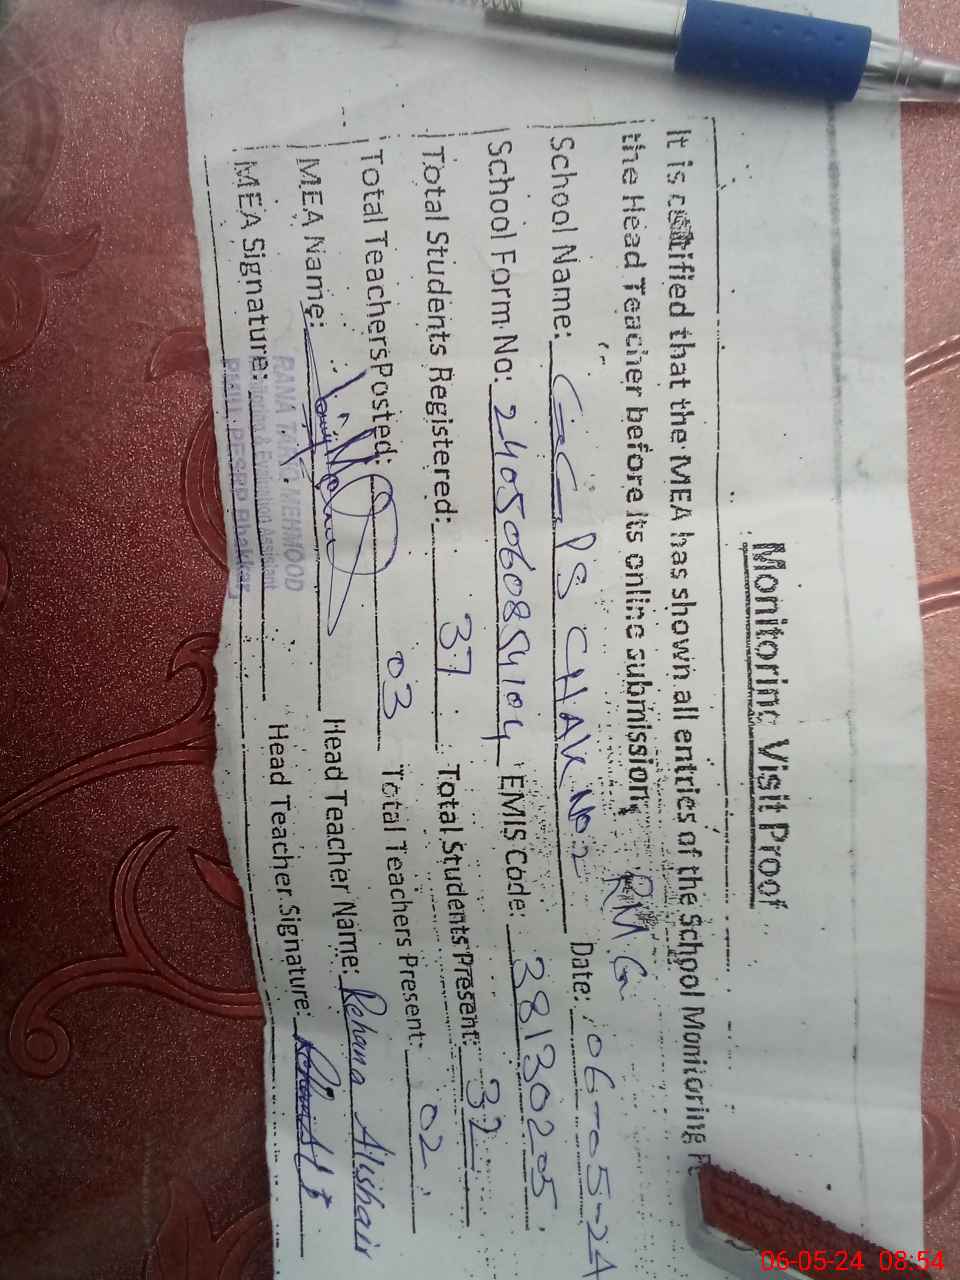 Monitoring Visit Proof
It is certified that the MEA has shown all entries of the School Monitoring
the Head Teacher before its online submission. RMG
School Name: GGPS CHAK No 2 Date: 06-05-24
School Form No: 2405060854104 EMIS Code: 38130205
Total Students Registered: 37 Total Students Present: 32
Total Teachers Posted: 03 Total Teachers Present: 02
MEA Name: Head Teacher Name: Rehana
MEA Signature: Head Teacher Signature:
RANA MEHMOOD
Monitoring & Evaluation Assistant
PMIU PESRP Bhakkar
06-05-24 08:54